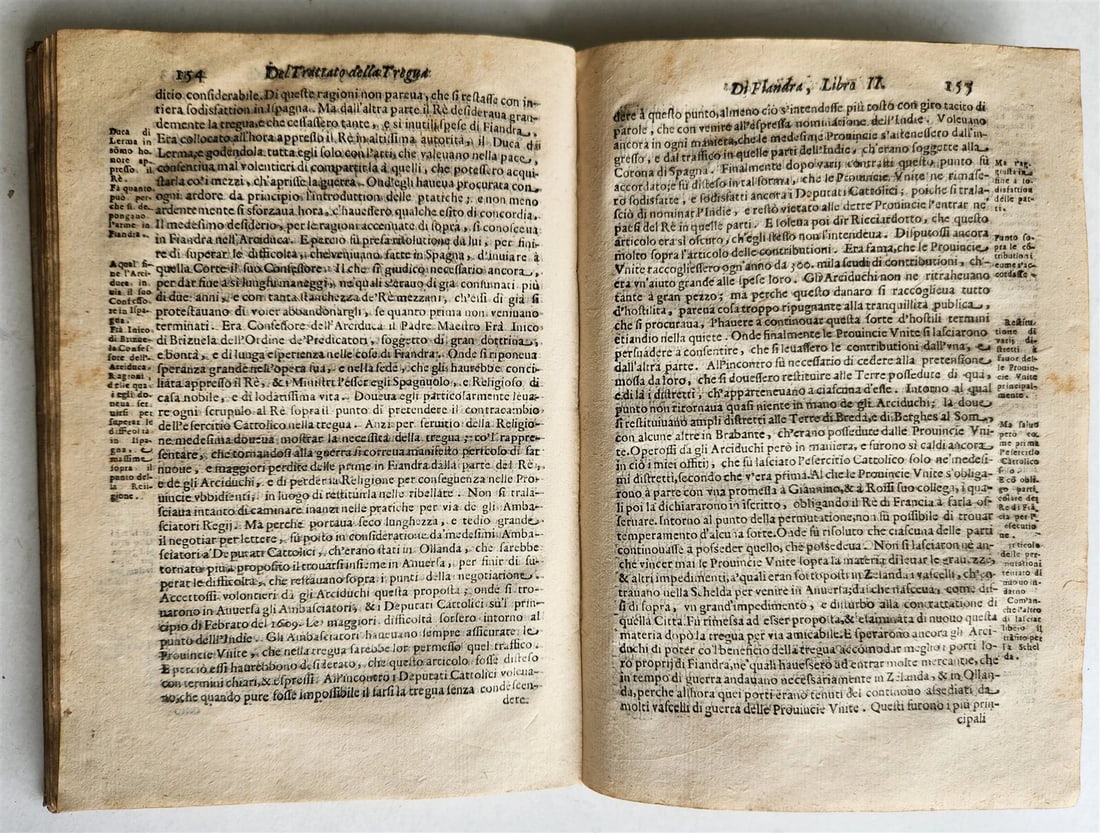 154 Del Trattato della Tregua
ditio considerabile. Di queste ragioni non pareua, che si restasse con in-
tiera sodisfattion in Ispagna. Ma dall'altra parte il Rè desideraua gran-
demente la tregua, e che cessassero tante, e si inutili spese di Fiandra.
Era collocato all'hora appresso il Rè in altissima autorità, il Duca di
Lerma, e godendola tutta egli solo con l'arti, che valeuano nella pace,
consentiua mal volentieri di compartirla à quelli, che potessero acqui-
starla co' i mezzi, ch'aprisse la guerra. Ond'egli haueua procurata con
ogni ardore da principio l'introduttion delle pratiche; e non meno
ardentemente si sforzaua hora, c'hauessero qualche esito di concordia.
Il medesimo desiderio, per le ragioni accennate di sopra, si conosceua
in Fiandra nell'Arciduca. E perciò fù presa risolutione da lui, per fini-
re di superar le difficoltà, che veniuano fatte in Spagna, d'inuiare à
quella Corte il suo Confessore. Il che si giudicò necessario ancora,
per dar fine à sì lunghi maneggi, ne' quali s'erano di già consumati più
di due anni, e con tanta stanchezza de' Rè mezzani, ch'essi di già si
protestauano di voler abbandonargli, se quanto prima non veniuano
terminati. Era Confessore dell'Arciduca il Padre Maestro Frà Inico
di Brizuela dell'Ordine de' Predicatori, soggetto di gran dottrina,
e bontà, e di lunga esperienza nelle cose di Fiandra. Onde si riponeua
speranza grande nell'opera sua, e nella fede, che gli haurebbe conci-
liata appresso il Rè, & i Ministri l'esser egli Spagnuolo, e Religioso di
casa nobile, e di lodatissima vita. Doueua egli particolarmente leua-
re ogni scrupolo al Rè sopra il punto di pretendere il contracambio
dell'esercitio Cattolico nella tregua. Anzi per seruitio della Religio-
ne medesima doueua mostrar la necessità della tregua; co'l rappre-
sentare, che tornandosi alla guerra si correua manifesto pericolo di far
nuoue, e maggiori perdite delle prime in Fiandra dalla parte del Rè,
e de gli Arciduchi, e di perder la Religione per conseguenze nelle Pro-
uincie vbbidienti, in luogo di restituirla nelle ribellate. Non si trala-
sciaua intanto di caminare inanzi nelle pratiche per via de gli Ambas-
sciatori Regij. Ma perche portaua seco lunghezza, e tedio grande
il negotiar per lettere, fù posto in consideratione da' medesimi Amba-
sciatori à Deputati Cattolici, ch'erano stati in Ollanda, che sarebbe
tornato più à proposito il trouarsi insieme in Anuersa, per finir di su-
perar le difficoltà, che restauano sopra i punti della negotiatione.
Accettossi volontieri da gli Arciduchi questa proposta; onde si tro-
uarono in Anuersa gli Ambasciatori, & i Deputati Cattolici su'l prin-
cipio di Febrato del 1609. Le maggiori difficoltà sorsero intorno al
punto dell'Indie. Gli Ambasciatori haueuano sempre assicurate le
Prouincie Vnite, che nella tregua sarebbe lor permesso quel traffico.
E perciò essi haurebbono desiderato, che questo articolo fosse disteso
con termini chiari, & espressi. All'incontro i Deputati Cattolici voleua-
no, che quando pure fosse impossibile il farsi la tregua senza condescen-
dere
Duca di
Lerma in
sōmo ho-
nore ap-
presso il
Rè.
Fà quanto
può per-
che si de-
pongano
l'arme in
Fiandra.
A qual fi-
ne l'Arci-
duca in-
uia il suo
Confesso-
re in Ispa-
gna.
Frà Inico
di Brizue-
la Confes-
sore dell'
Arciduca.
Ragioni,
delle qua-
i egli do-
ueua ser-
uirsi per
superar le
difficoltà
in Ispa-
gna, e
massime
sopra il
punto del-
la Reli-
gione.
Di Fiandra, Libro II. 155
dere à questo punto, almeno ciò s'intendesse più tosto con giro tacito di
parole, che con venire all'espressa nominatione dell'Indie. Voleuano
ancora in ogni maniera, che le medesime Prouincie s'astenessero dall'in-
gresso, e dal traffico in quelle parti dell'Indie, ch'erano soggette alla
Corona di Spagna. Finalmente dopo varij contrasti questo punto fù
accordato; e fù disteso in tal forma, che le Prouincie Vnite ne rimase-
ro sodisfatte, e sodisfatti ancora i Deputati Cattolici; poiche si trala-
sciò di nominar l'Indie, e restò vietato alle dette Prouincie l'entrar ne'
paesi del Rè in quelle parti. E soleua poi dir Ricciardotto, che questo
articolo era sì oscuro, ch'egli stesso non l'intendeua. Disputossi ancora
molto sopra l'articolo delle contributioni. Era fama, che le Prouincie
Vnite raccogliessero ogn'anno da 300. mila scudi di contributioni, ch'-
era vn'aiuto grande alle spese loro. Gli Arciduchi non ne ritraheuano
tante à gran pezzo; ma perche questo danaro si raccoglieua tutto
d'hostilità, pareua cosa troppo ripugnante alla tranquillità publica,
che si procuraua, l'hauere à continouar questa sorte d'hostili termini
etiandio nella quiete. Onde finalmente le Prouincie Vnite si lasciarono
persuadere à consentire, che si leuassero le contributioni dall'vna, e
dall'altra parte. All'incontro fù necessario di cedere alla pretensione
mossa da loro, che si douessero restituire alle Terre possedute di quà,
e di là i distretti, ch'apparteneuano à ciascuna d'esse. Intorno al qual
punto non ritornaua quasi niente in mano de gli Arciduchi; la doue
si restituiuano ampli distretti alle Terre di Breda, e di Berghes al Som,
con alcune altre in Brabante, ch'erano possedute dalle Prouincie Vni-
te. Operossi da gli Arciduchi però in maniera, e furono sì caldi ancora
in ciò i miei offitij, che fù lasciato l'esercitio Cattolico solo ne' medesi-
mi distretti, secondo che v'era prima. Al che le Prouincie Vnite s'obliga-
rono à parte con vna promessa à Giannino, & à Rossi suo collega, i qua-
li poi la dichiararono in iscritto, obligando il Rè di Francia à farla os-
seruare. Intorno al punto della permutatione, non fù possibile di trouar
temperamento d'alcuna sorte. Onde fù risoluto che ciascuna delle parti
continouasse à posseder quello, che possedeua. Non si lasciaron nè an-
che vincer mai le Prouincie Vnite sopra la materia di leuar le grauezze,
& altri impedimenti, a' quali eran sottoposti in Zelanda i vascelli, ch'en-
trauano nella Schelda per venire in Anuersa; dai che nasceua, come dis-
si di sopra, vn grand'impedimento, e disturbo alla contrattatione di
quella Città. Fù rimessa ad esser proposta, & esaminata di nuouo questa
materia dopò la tregua per via amicabile. E sperarono ancora gli Arci-
duchi di poter co'l beneficio della tregua accomodar meglio i porti lo-
ro proprij di Fiandra, ne' quali hauessero ad entrar molte mercantie, che
in tempo di guerra andauano necessariamente in Zelanda, & in Ollan-
da, perche all'hora quei porti erano tenuti del continouo assediati da
molti vascelli di guerra delle Prouincie Vnite. Questi furono i più prin-
cipali
Ma rag-
giusta in-
fine à so-
disfattion
delle par-
ti.
Punto so-
pra le cō-
tributioni
come s'ac-
cordasse.
Restitu-
tione di
varij di-
stretti à
fauor del-
le Prouin-
cie Vnite
principal-
mente.
Ma saluo
però co-
me prima
l'esercitio
Cattolico
E cō obli-
go parti-
colare del
Rè di Frā-
cia per l'e-
secutio-
ne.
Articolo
delle per-
mutationi
tentato di
nuouo in-
darno
Com'an-
che l'altro
di lasciar
libero il
transito per
la Schel-
da.